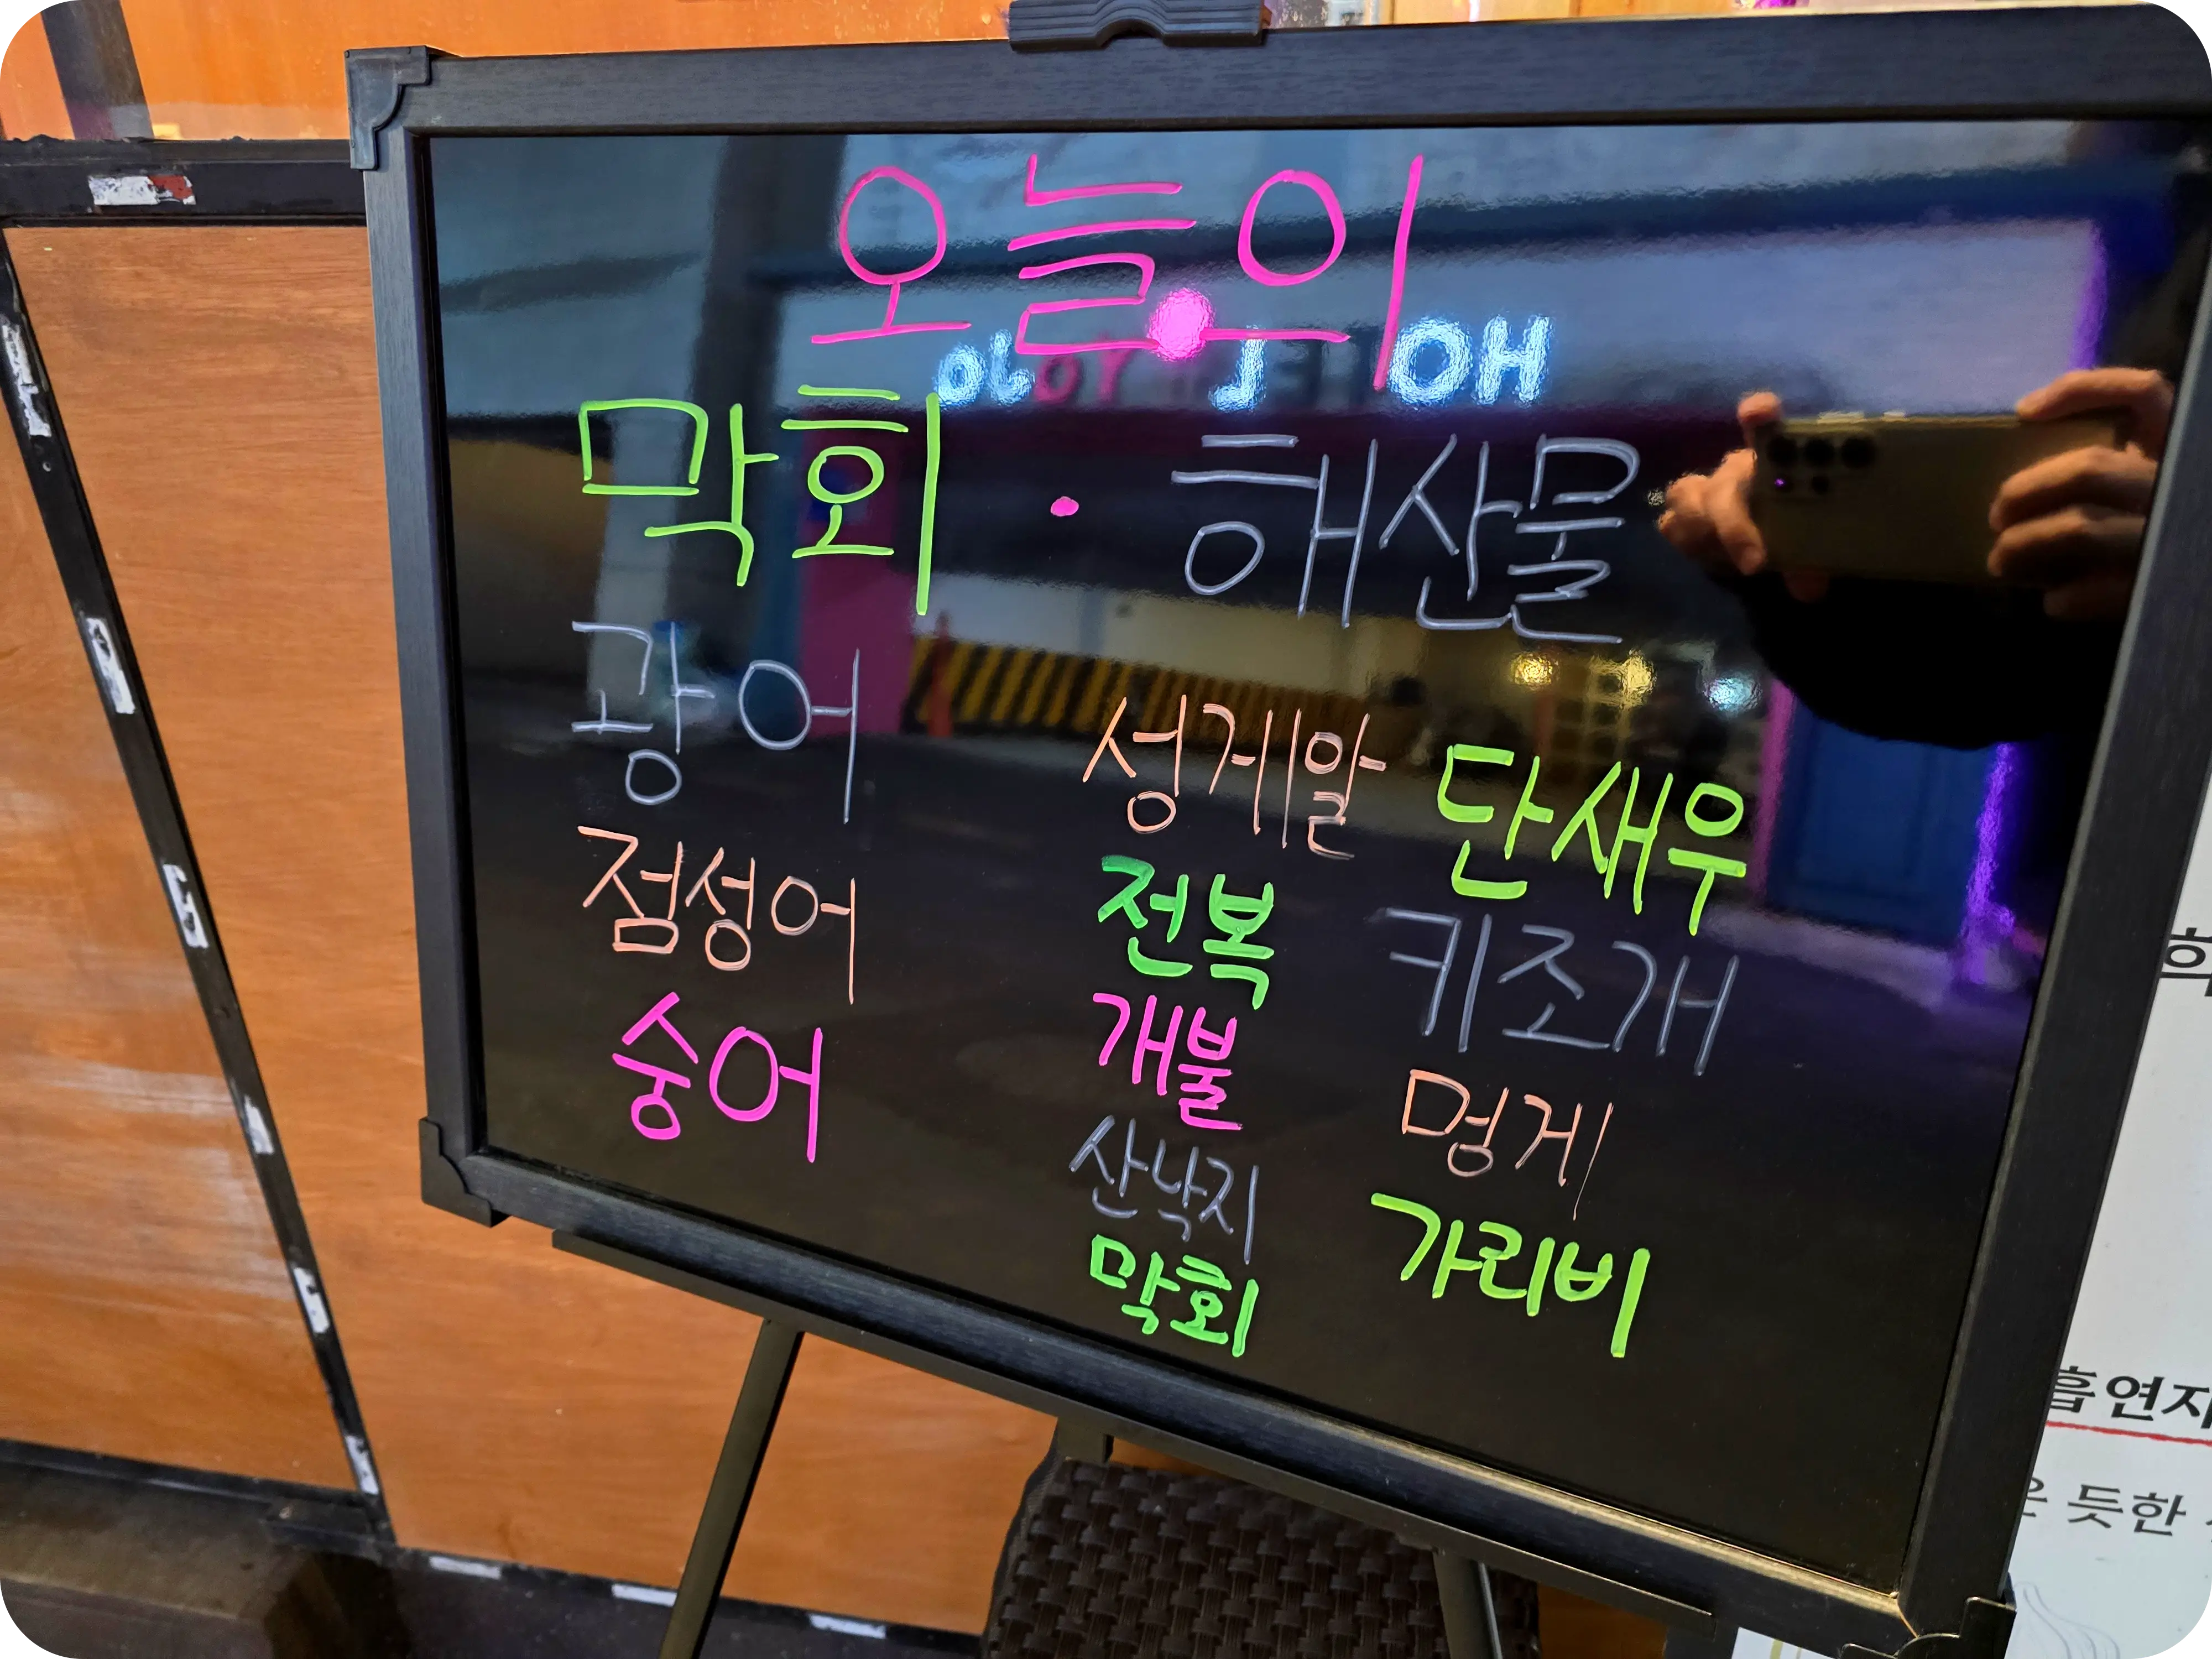 오늘의
막회 · 해산물
광어
점성어
숭어
성게알 단새우
전복 키조개
개불 멍게
산낙지 가리비
막회
흡연자
듯한